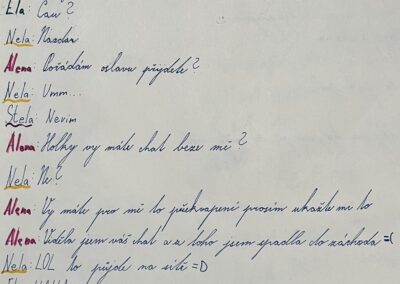 Ela: Čau?
Nela: Nazdar
Alena: Pořádám oslavu přijdete?
Nela: Umm...
Stela: Nevim
Alena: Holky vy máte chat beze mě?
Nela: Ne?
Alena: Vy máte pro mě to překvapení prosím ukažte mi to
Alena: Viděla jsem váš chat a z toho jsem spadla do záchoda =(
Nela: LOL to přijde na sítě =D